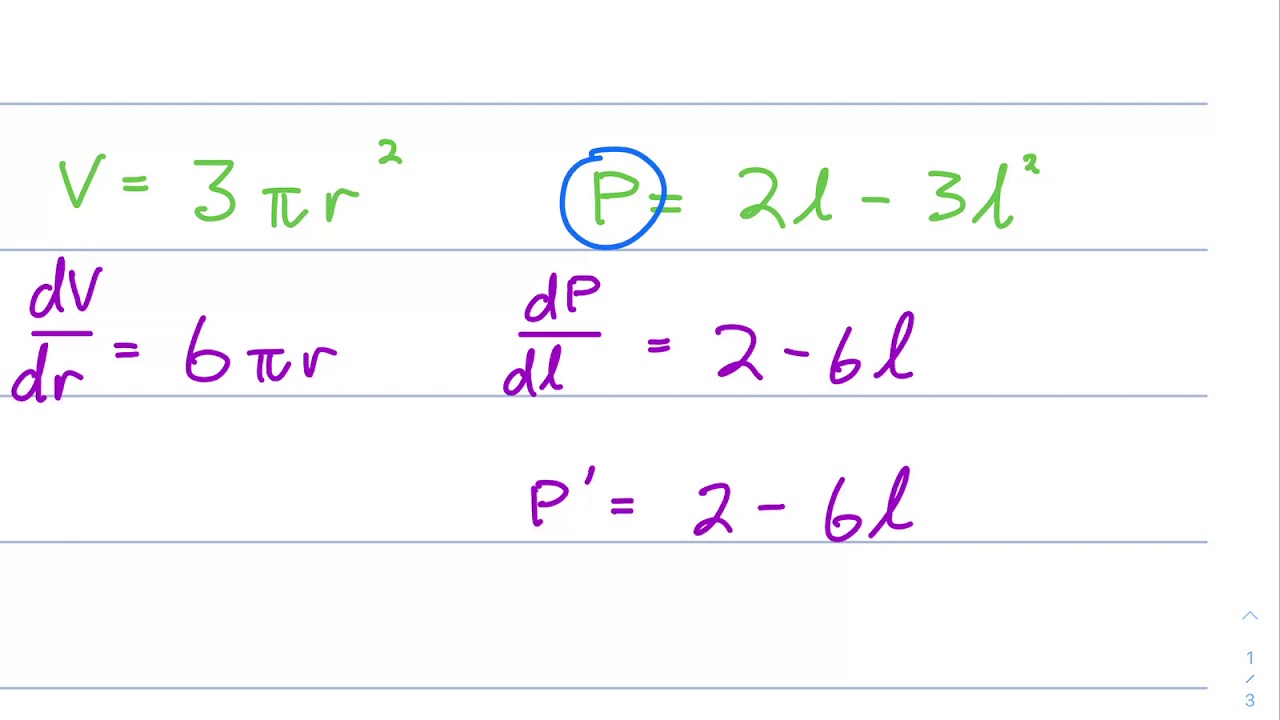 V = 3πr² P = 2l - 3l²
dV/dr = 6πr dP/dl = 2 - 6l
P' = 2 - 6l
1
/
3